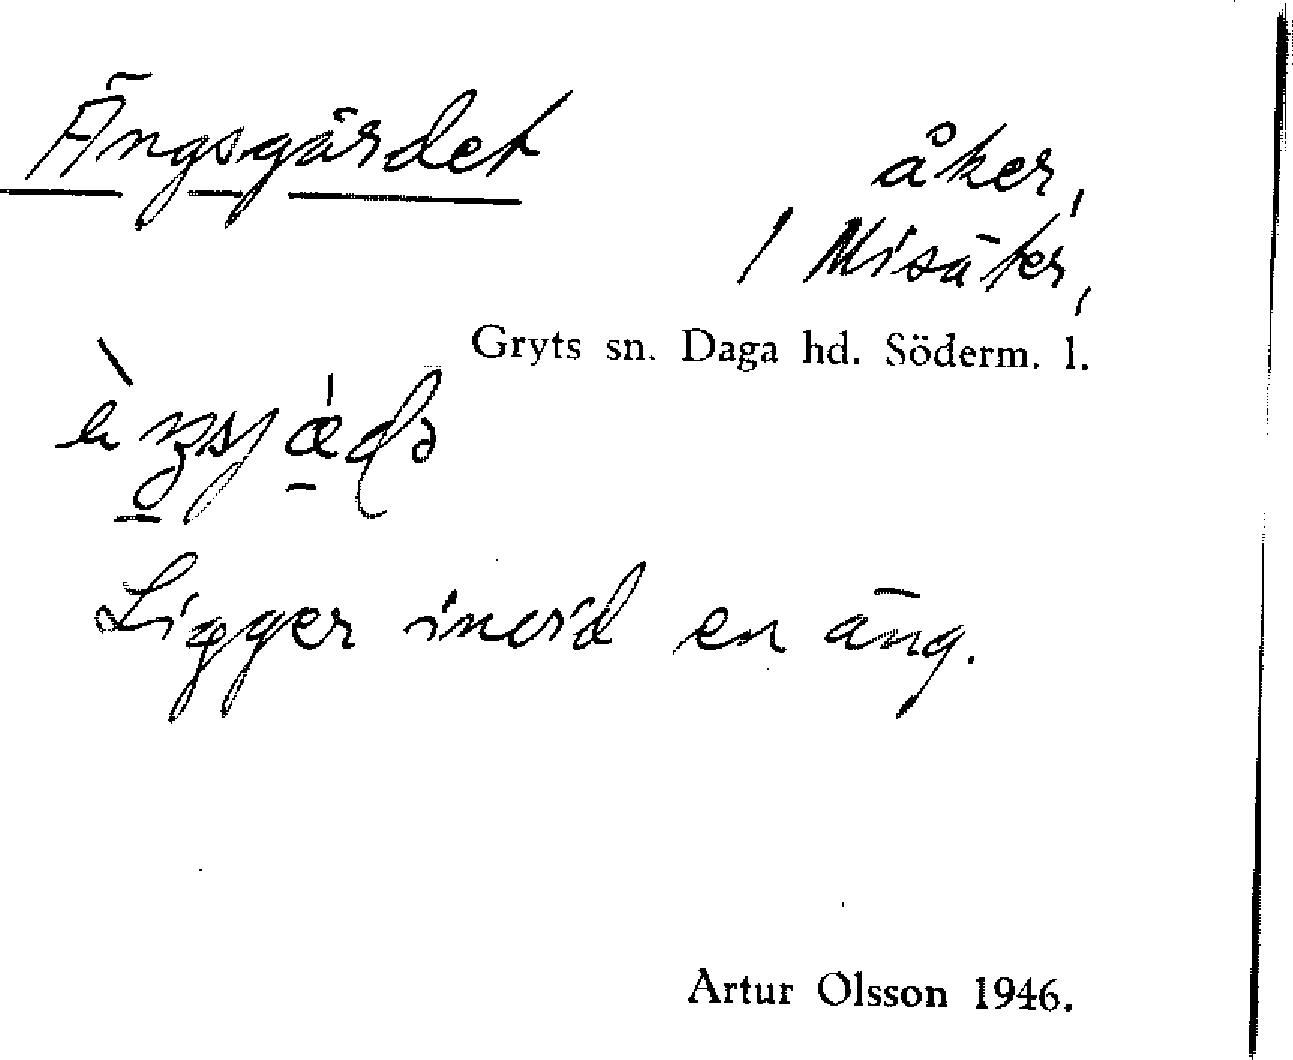 Ängsgärdet
åker,
1 Misäter,
Gryts sn. Daga hd. Söderm. l.
Ligger invid en äng.
Artur Olsson 1946.